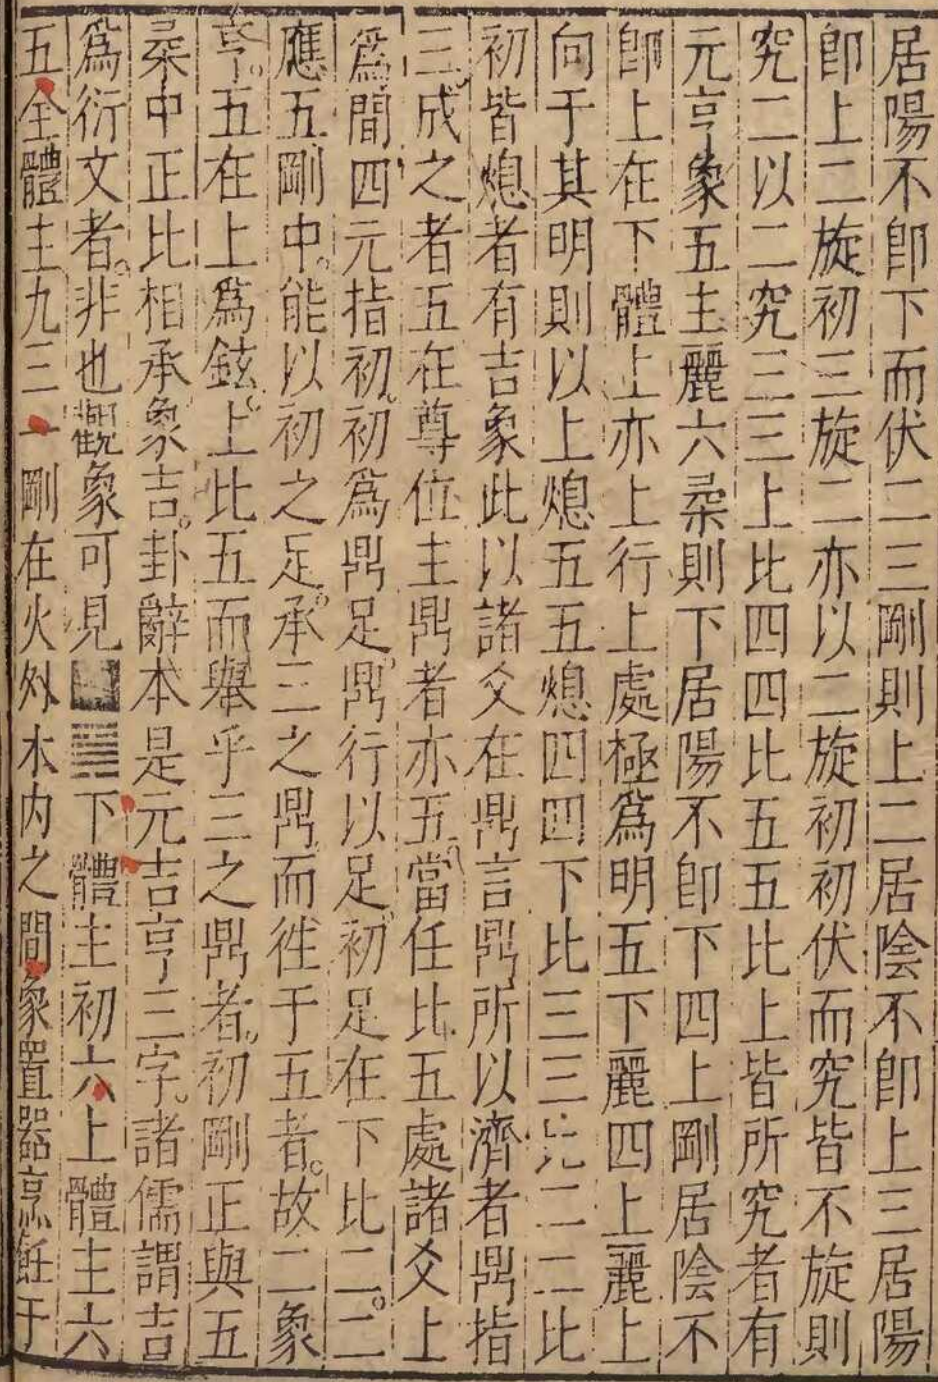 居陽不卽下而伏二三剛則上二居陰不卽上三居陽
卽上二旋初三旋二亦以二旋初初伏而究皆不旋則
究二以二究三三上比四四比五五比上皆所究者有
元亨象五主麗六柔則下居陽不卽下四上剛居陰不
卽上在下體上亦上行上處極爲明五下麗四上麗上
向于其明則以上熄五五熄四四下比三三比二二比
初皆熄者有吉象此以諸爻在鼎言鼎所以濟者鼎指
三成之者五在尊位主鼎者亦五當任比五處諸爻上
爲間四元指初初爲鼎足鼎行以足初足在下比二二
應五剛中能以初之足承三之鼎而徃于五者故二象
亨五在上爲鉉上比五而舉乎三之鼎者初剛正與五
柔中正比相承象吉卦辭本是元吉亨三字諸儒謂吉
爲衍文者非也觀象可見䷱下體主初六上體主六
五全體主九三一剛在火外木内之間象置器烹飪于